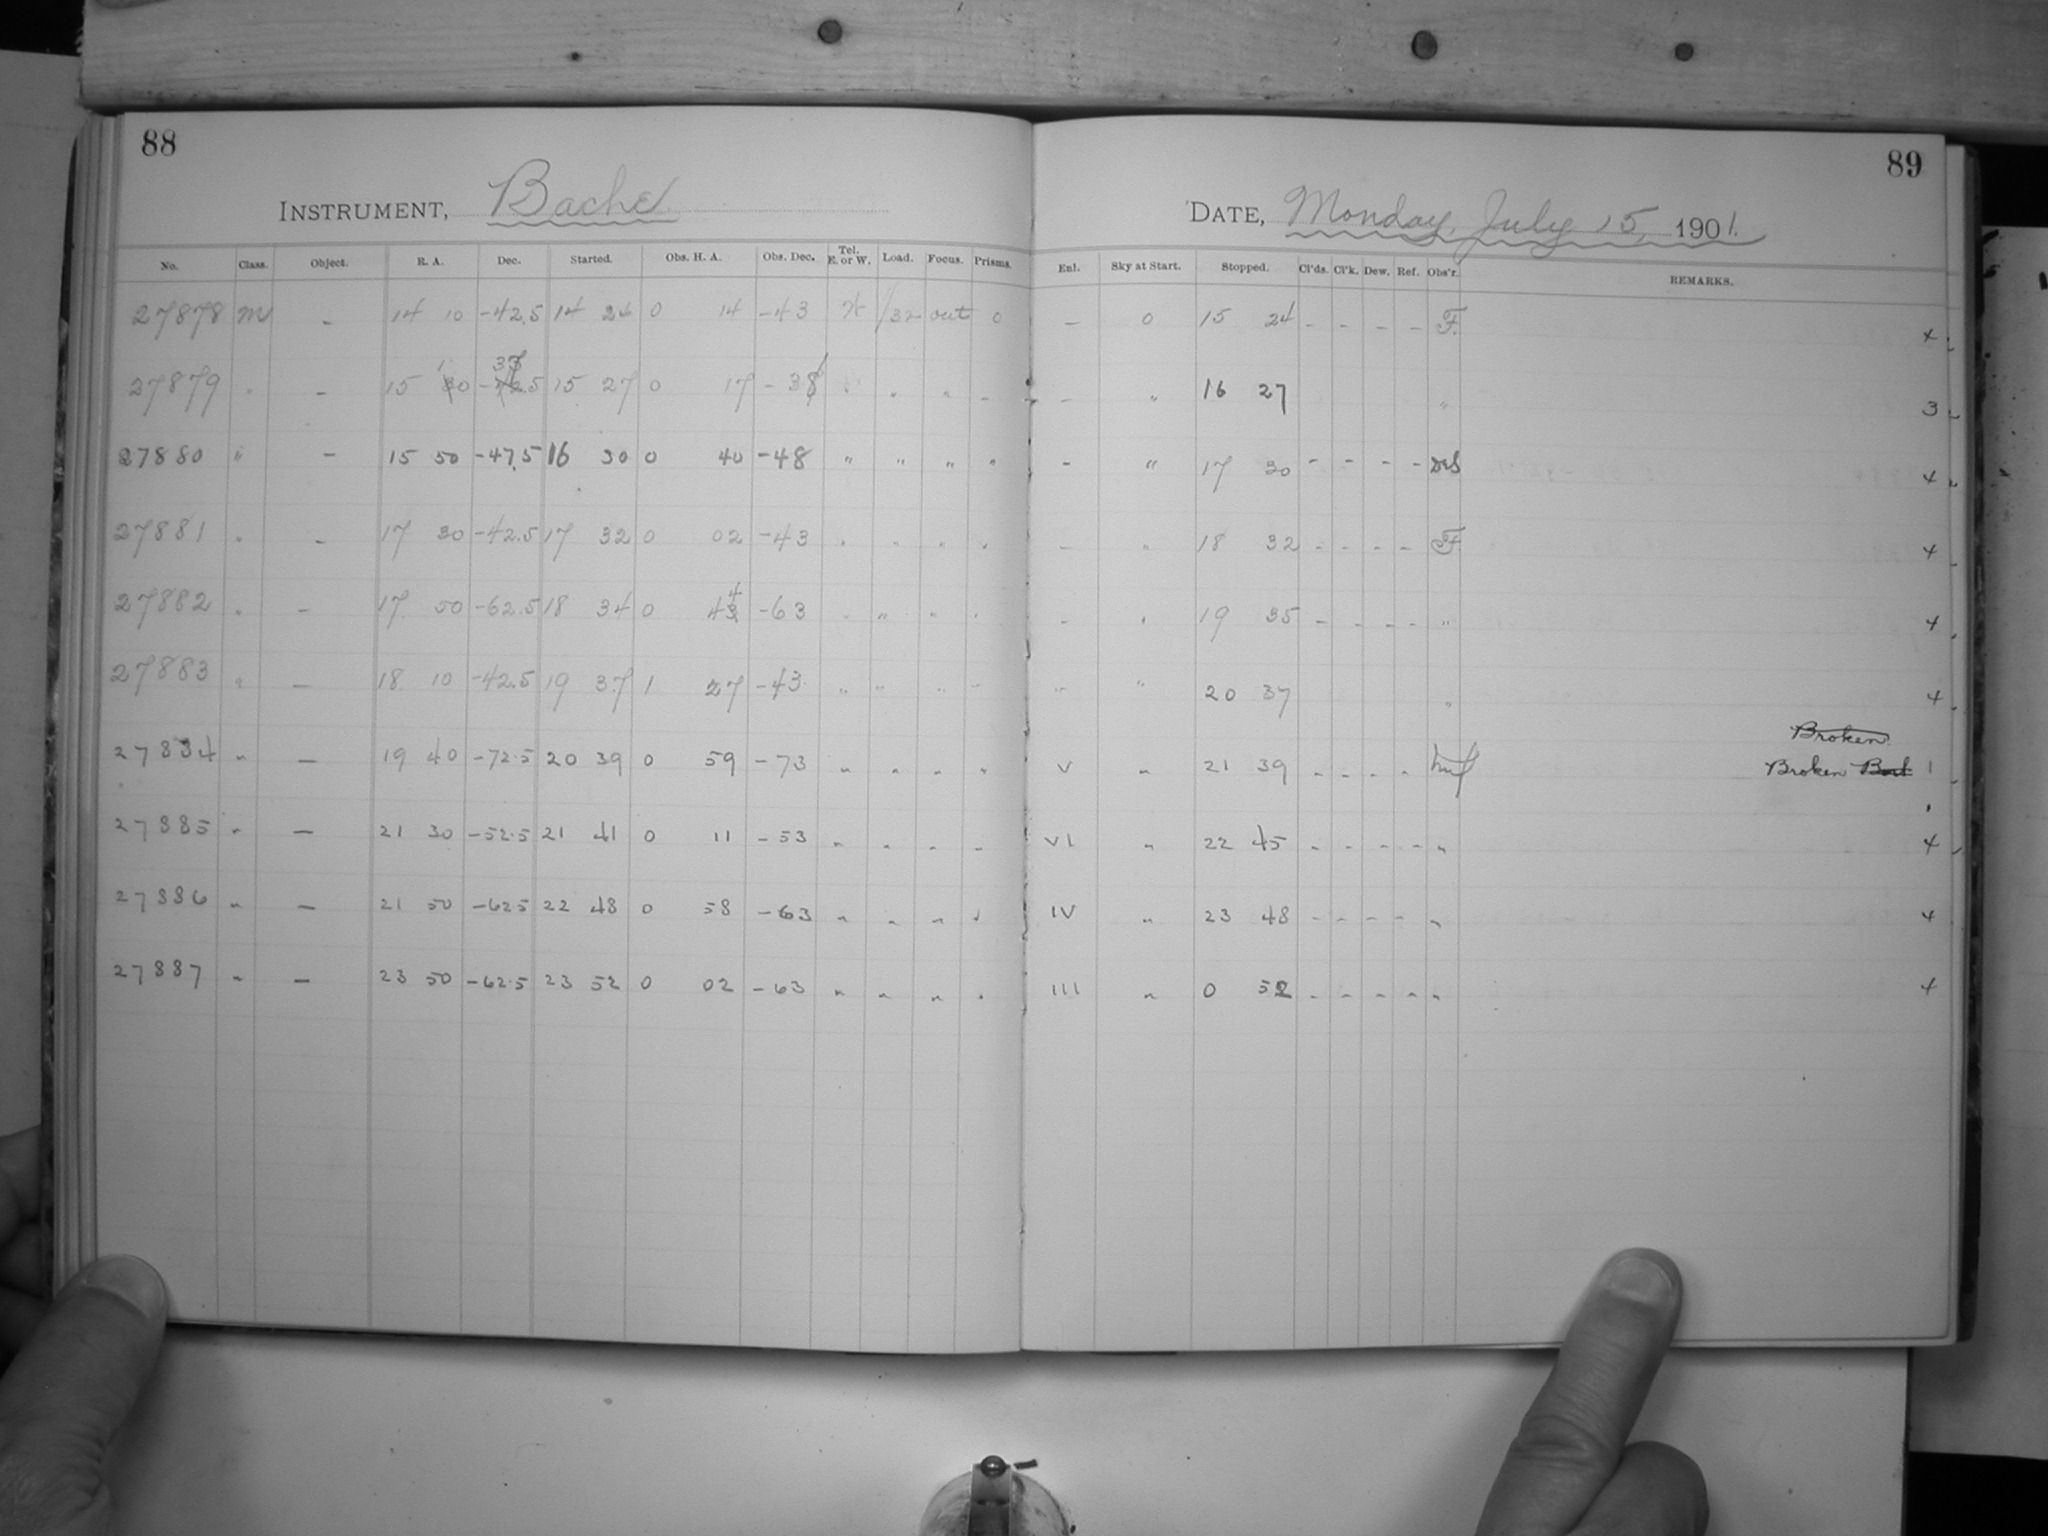 88
89
INSTRUMENT, Bache
DATE, Monday, July 15, 1901.
No. Class. Object. R. A. Dec. Started. Obs. H. A. Obs. Dec. Tel. E. or W. Load. Focus. Prisms. Enl. Sky at Start. Stopped. Cl'ds. Cl'k. Dew. Ref. Obs'r. REMARKS.
27878 m - 14 10 -42.5 14 24 0 14 -43 1/32 out 0 - 0 15 24 - - - - F. 4
27879 " - 15 10 -37.5 15 27 0 17 -38 " " " - - " 16 27 " 3
27880 " - 15 50 -47.5 16 30 0 40 -48 " " " " - " 17 30 - - - - DeS 4
27881 " - 17 30 -42.5 17 32 0 02 -43 " " " " - " 18 32 - - - - F 4
27882 " - 17 50 -62.5 18 34 0 44 -63 " " " " - " 19 35 - - - - " 4
27883 " - 18 10 -42.5 19 37 1 27 -43 " " " - " " 20 37 " 4
Broken
27884 " - 19 40 -72.5 20 39 0 59 -73 " " " " V " 21 39 - - - - Broken 1
27885 " - 21 30 -52.5 21 41 0 11 -53 " " " " VI " 22 45 - - - - " 4
27886 " - 21 50 -62.5 22 48 0 58 -63 " " " " IV " 23 48 - - - - " 4
27887 " - 23 50 -62.5 23 52 0 02 -63 " " " " III " 0 52 - - - - " 4